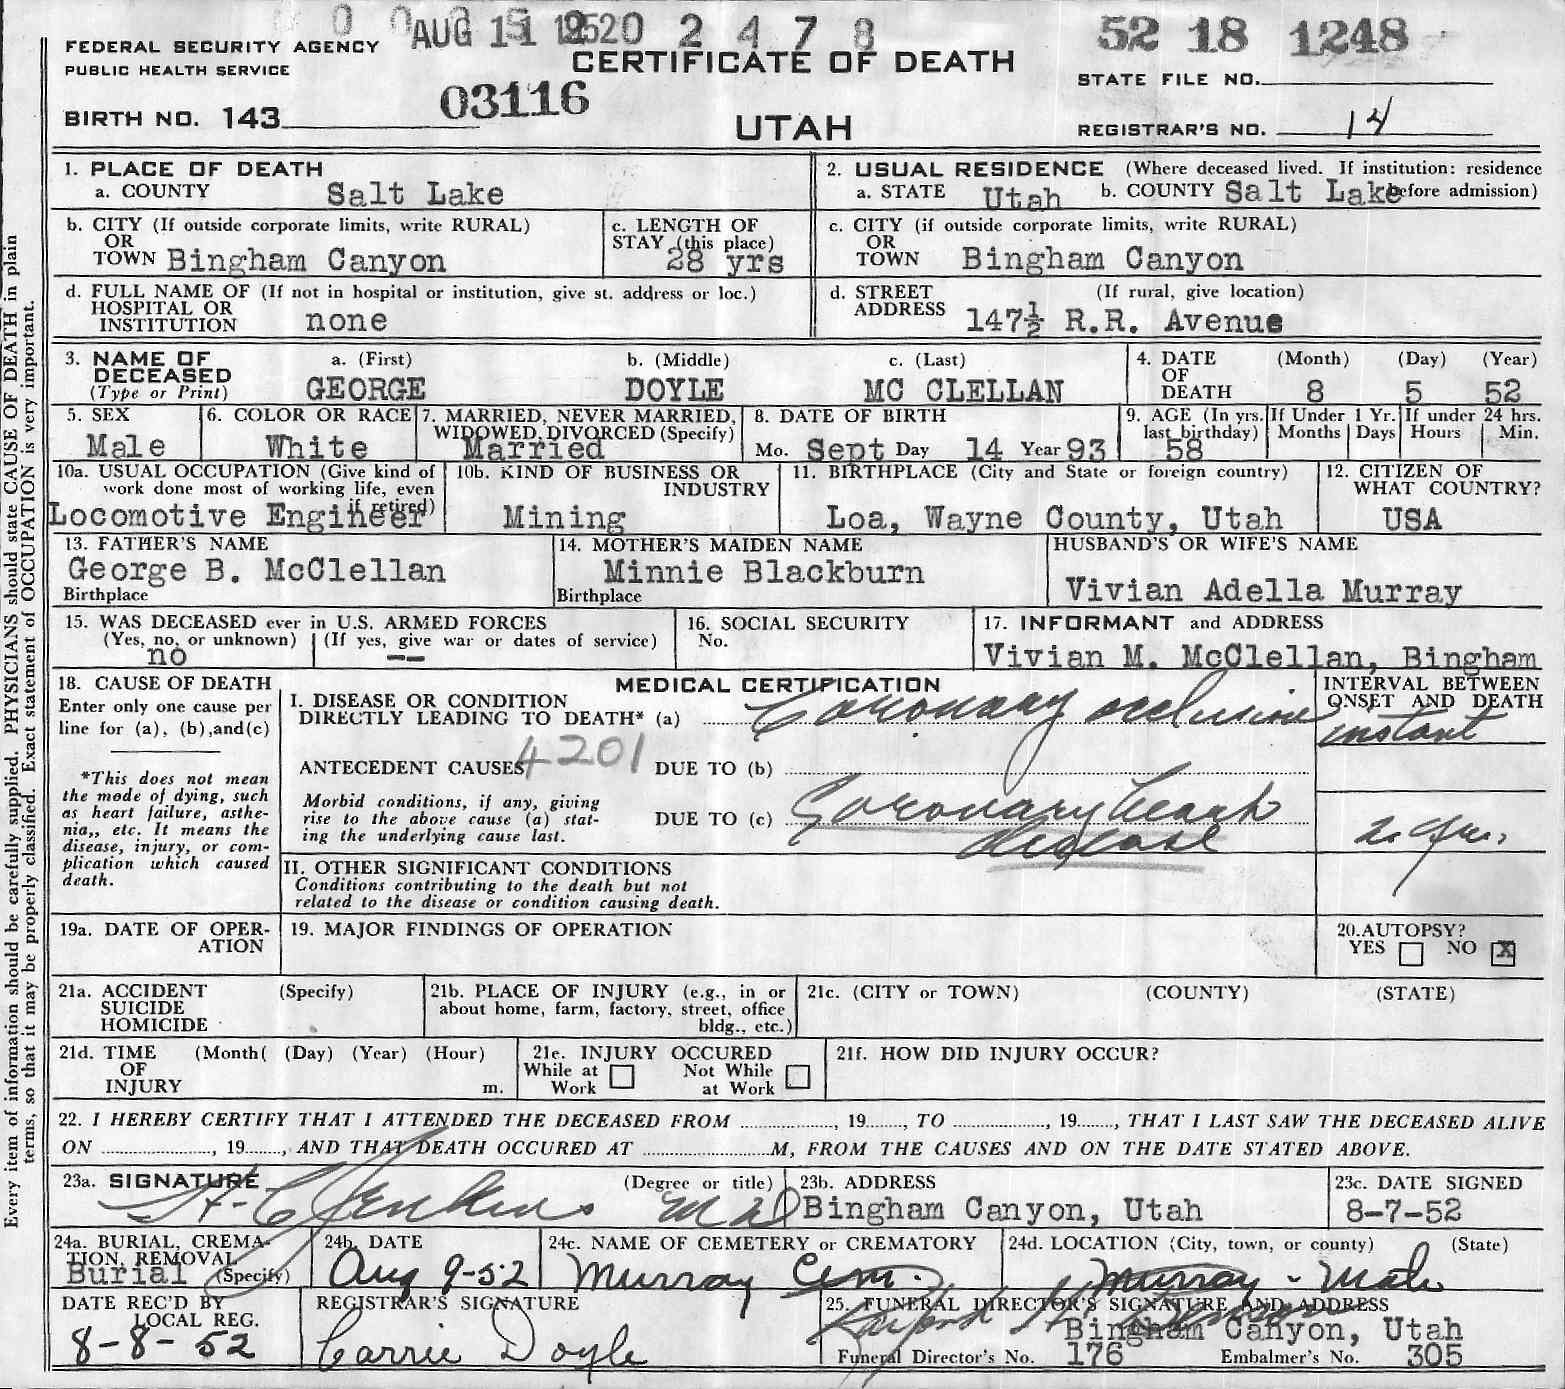 AUG 11 1952 0 2 4 7 8
52 18 1248
FEDERAL SECURITY AGENCY
PUBLIC HEALTH SERVICE
CERTIFICATE OF DEATH
STATE FILE NO.
BIRTH NO. 143 03116
UTAH
REGISTRAR'S NO. 14
1. PLACE OF DEATH
a. COUNTY Salt Lake
2. USUAL RESIDENCE (Where deceased lived. If institution: residence
a. STATE Utah b. COUNTY Salt Lake before admission)
b. CITY (If outside corporate limits, write RURAL)
OR
TOWN Bingham Canyon
c. LENGTH OF
STAY (this place)
28 yrs
c. CITY (if outside corporate limits, write RURAL)
OR
TOWN Bingham Canyon
d. FULL NAME OF (If not in hospital or institution, give st. address or loc.)
HOSPITAL OR
INSTITUTION none
d. STREET (If rural, give location)
ADDRESS 147½ R.R. Avenue
3. NAME OF DECEASED
(Type or Print)
a. (First) b. (Middle) c. (Last)
GEORGE DOYLE MC CLELLAN
4. DATE (Month) (Day) (Year)
OF
DEATH 8 5 52
5. SEX
Male
6. COLOR OR RACE
White
7. MARRIED, NEVER MARRIED,
WIDOWED, DIVORCED (Specify)
Married
8. DATE OF BIRTH
Mo. Sept Day 14 Year 93
9. AGE (In yrs.
last birthday)
58
If Under 1 Yr.
Months Days
If under 24 hrs.
Hours Min.
10a. USUAL OCCUPATION (Give kind of
work done most of working life, even
if retired)
Locomotive Engineer
10b. KIND OF BUSINESS OR
INDUSTRY
Mining
11. BIRTHPLACE (City and State or foreign country)
Loa, Wayne County, Utah
12. CITIZEN OF
WHAT COUNTRY?
USA
13. FATHER'S NAME
George B. McClellan
Birthplace
14. MOTHER'S MAIDEN NAME
Minnie Blackburn
Birthplace
HUSBAND'S OR WIFE'S NAME
Vivian Adella Murray
15. WAS DECEASED ever in U.S. ARMED FORCES
(Yes, no, or unknown) (If yes, give war or dates of service)
no --
16. SOCIAL SECURITY
No.
17. INFORMANT and ADDRESS
Vivian M. McClellan, Bingham
18. CAUSE OF DEATH
Enter only one cause per
line for (a), (b),and(c)
*This does not mean
the mode of dying, such
as heart failure, asthe-
nia,, etc. It means the
disease, injury, or com-
plication which caused
death.
MEDICAL CERTIFICATION
I. DISEASE OR CONDITION
DIRECTLY LEADING TO DEATH* (a) Coronary occlusion
INTERVAL BETWEEN
ONSET AND DEATH
instant
ANTECEDENT CAUSES 4201 DUE TO (b)
Morbid conditions, if any, giving
rise to the above cause (a) stat-
ing the underlying cause last.
DUE TO (c) Coronary heart
disease
2 yrs.
II. OTHER SIGNIFICANT CONDITIONS
Conditions contributing to the death but not
related to the disease or condition causing death.
19a. DATE OF OPER-
ATION
19. MAJOR FINDINGS OF OPERATION
20.AUTOPSY?
YES NO X
21a. ACCIDENT (Specify)
SUICIDE
HOMICIDE
21b. PLACE OF INJURY (e.g., in or
about home, farm, factory, street, office
bldg., etc.)
21c. (CITY or TOWN) (COUNTY) (STATE)
21d. TIME (Month( (Day) (Year) (Hour)
OF
INJURY m.
21e. INJURY OCCURED
While at Work Not While at Work
21f. HOW DID INJURY OCCUR?
22. I HEREBY CERTIFY THAT I ATTENDED THE DECEASED FROM , 19 , TO , 19 , THAT I LAST SAW THE DECEASED ALIVE
ON , 19 , AND THAT DEATH OCCURED AT M, FROM THE CAUSES AND ON THE DATE STATED ABOVE.
23a. SIGNATURE (Degree or title)
Jenkins M D
23b. ADDRESS
Bingham Canyon, Utah
23c. DATE SIGNED
8-7-52
24a. BURIAL, CREMA-
TION, REMOVAL
Burial (Specify)
24b. DATE
Aug 9-52
24c. NAME OF CEMETERY or CREMATORY
Murray Cem.
24d. LOCATION (City, town, or county) (State)
Murray - Utah
DATE REC'D BY
LOCAL REG.
8-8-52
REGISTRAR'S SIGNATURE
Carrie Doyle
25. FUNERAL DIRECTOR'S SIGNATURE AND ADDRESS
Bingham Canyon, Utah
Funeral Director's No. 176 Embalmer's No. 305
Every item of information should be carefully supplied. PHYSICIANS should state CAUSE OF DEATH in plain
terms, so that it may be properly classified. Exact statement of OCCUPATION is very important.